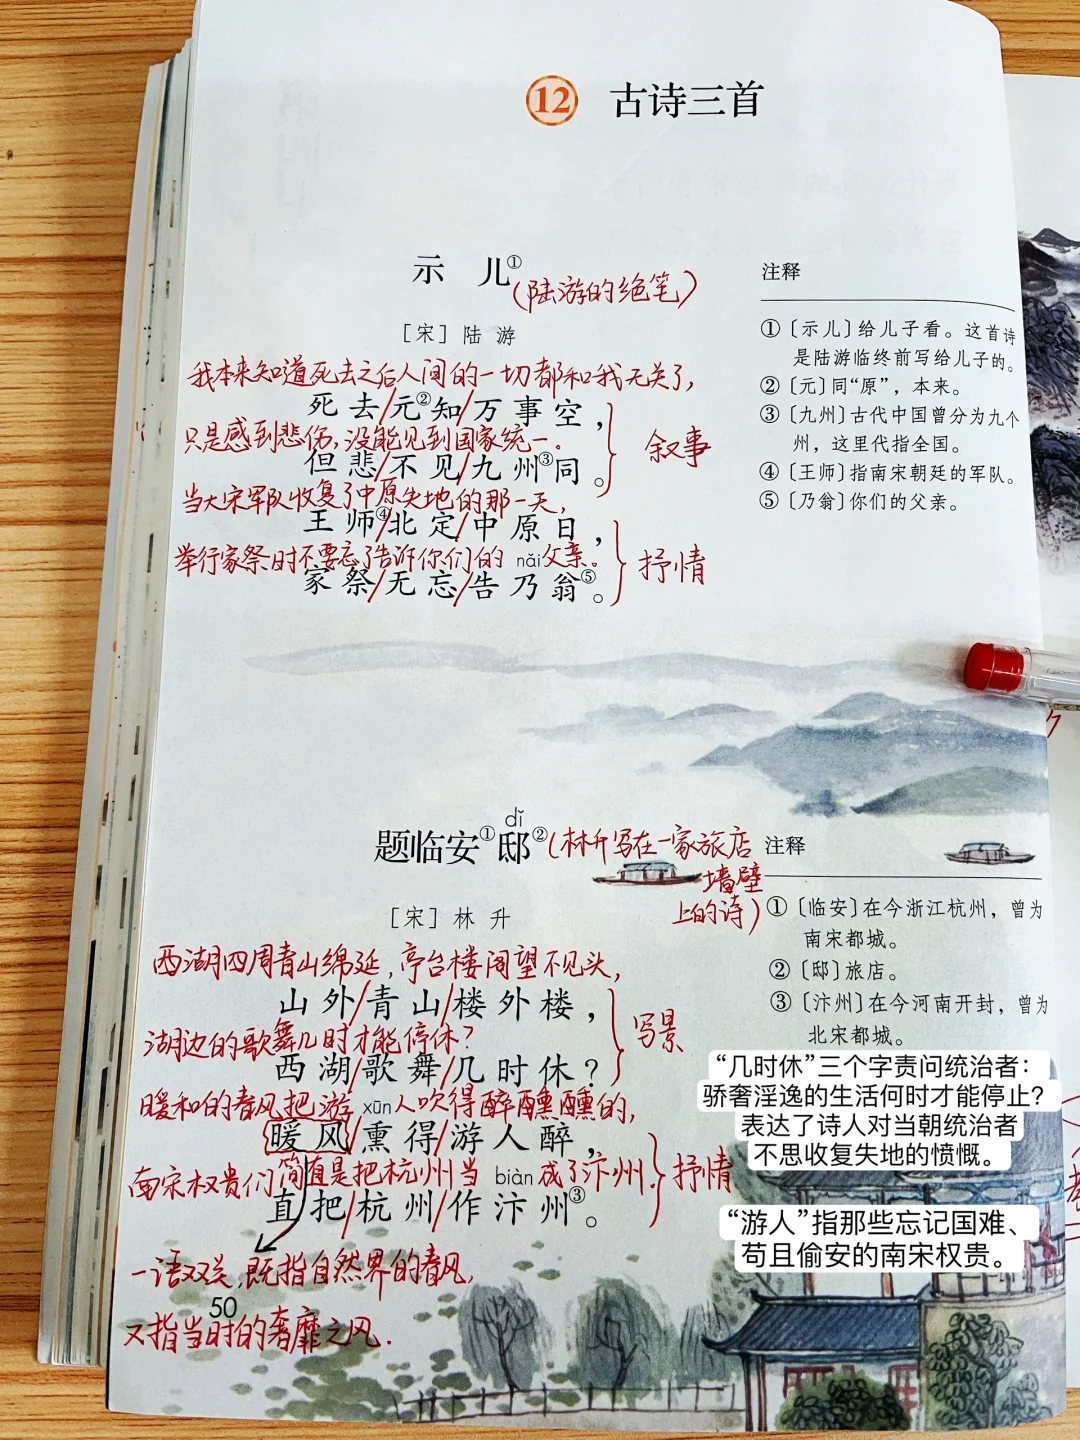 12 古诗三首
示儿①
(陆游的绝笔)
[宋] 陆游
我本来知道死去之后人间的一切都和我无关了,
死去/元②知/万事空,
只是感到悲伤,没能见到国家统一。
但悲/不见/九州③同。
叙事
当大宋军队收复了中原失地的那一天,
王师④/北定/中原日,
举行家祭时不要忘了告诉你们的父亲。
nǎi
家祭/无忘/告乃翁⑤。
抒情
注释
①〔示儿〕给儿子看。这首诗
是陆游临终前写给儿子的。
②〔元〕同“原”，本来。
③〔九州〕古代中国曾分为九个
州，这里代指全国。
④〔王师〕指南宋朝廷的军队。
⑤〔乃翁〕你们的父亲。
dǐ
题临安①邸②
(林升写在一家旅店
墙壁
上的诗)
[宋] 林升
西湖四周青山绵延,亭台楼阁望不见头,
山外/青山/楼外楼,
湖边的歌舞几时才能停休?
西湖/歌舞/几时休?
写景
暖和的春风把游人吹得醉醺醺的,
xūn
暖风/熏得/游人醉,
南宋权贵们简直是把杭州当成了汴州.
biàn
直把/杭州/作汴州③。
抒情
一语双关,既指自然界的春风,
又指当时的奢靡之风.
50
注释
①〔临安〕在今浙江杭州，曾为
南宋都城。
②〔邸〕旅店。
③〔汴州〕在今河南开封，曾为
北宋都城。
“几时休”三个字责问统治者：
骄奢淫逸的生活何时才能停止？
表达了诗人对当朝统治者
不思收复失地的愤慨。
“游人”指那些忘记国难、
苟且偷安的南宋权贵。